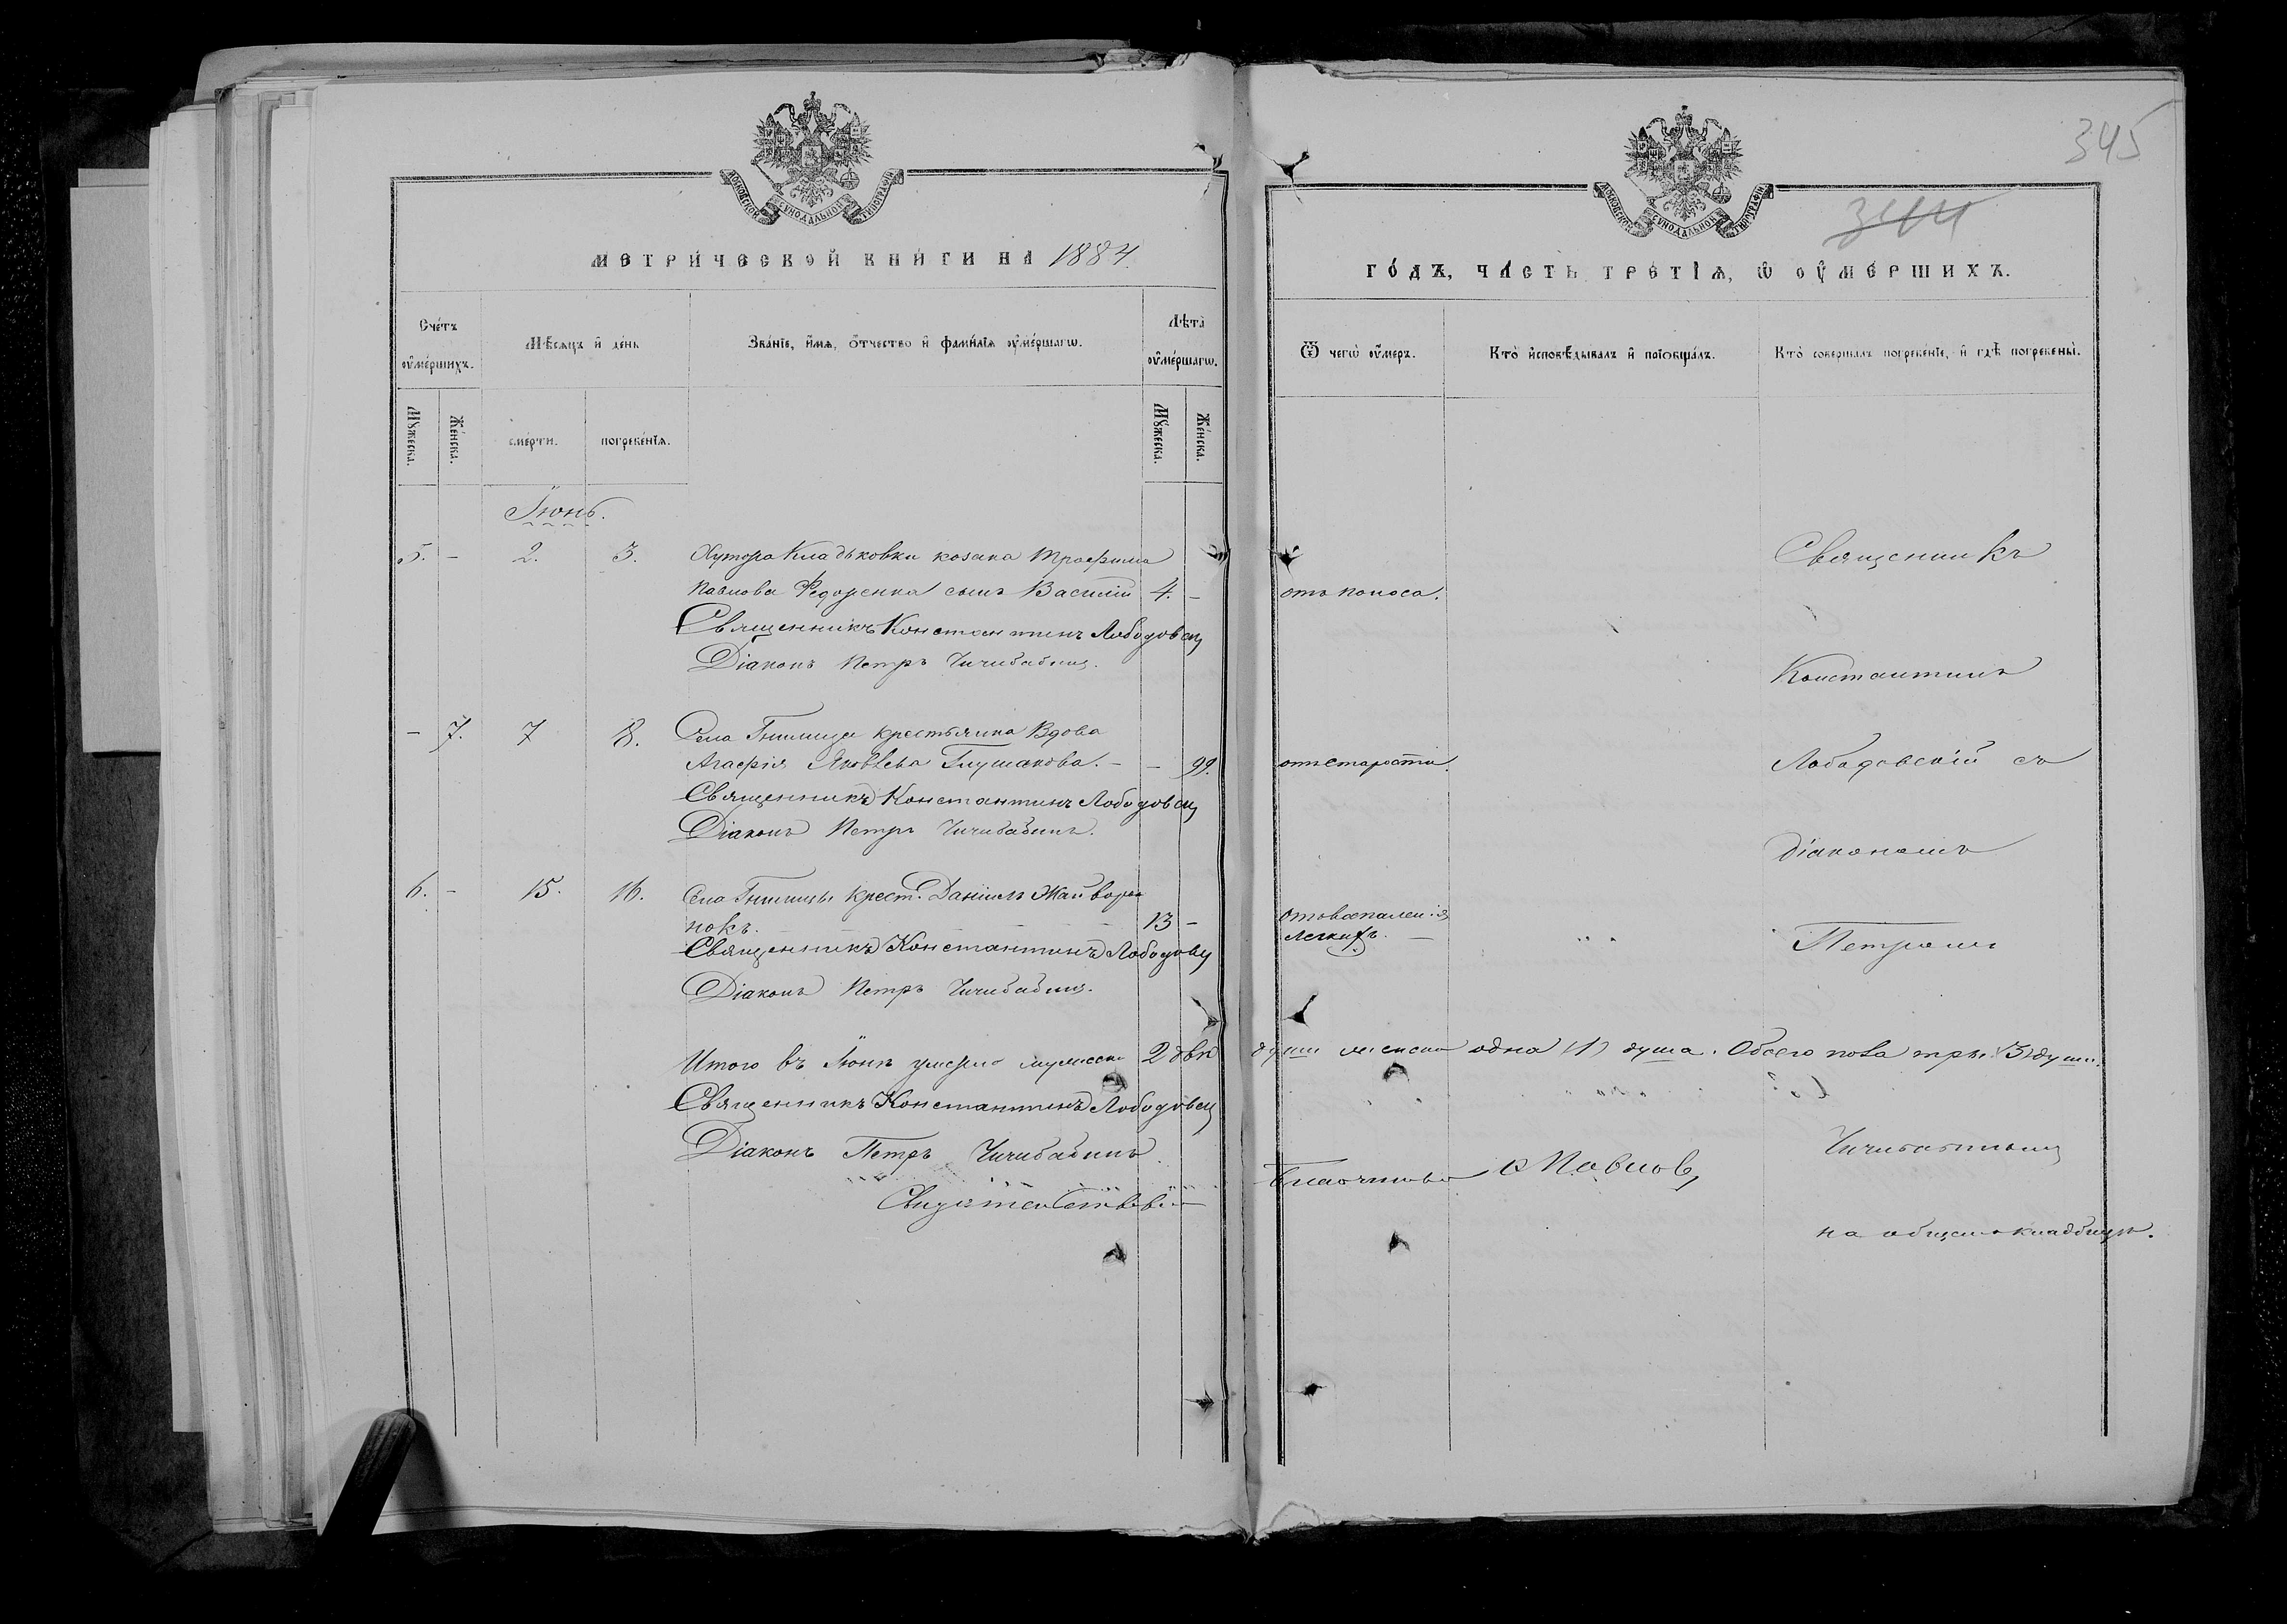 345
344
МОСКОВСКОЙ СУНОДАЛЬНОЙ ТИПОГРАФІИ
МЕТРИЧЕСКОЙ КНИГИ НА 1884.
Счетъ оумершихъ.
Мѣсяцъ и день
Званіе, имя, отчество и фамилія оумершагѡ.
Лѣта оумершагѡ.
Мужеска.
Женска.
смерти.
погребенія.
Мужеска.
Женска.
Іюнь.
5. - 2. 3. Хутора Кладьковки козака Трофима
Павлова Федоренка сынъ Василій 4. -
Священникъ Константинъ Лободовскій
Діаконъ Петръ Чичибабинъ.
- 7. 7 8. Села Гнилицы крестьянка Вдова
Агафія Яковлева Глушакова. - - 99.
Священникъ Константинъ Лободовскій
Діаконъ Петръ Чичибабинъ.
6. - 15. 16. Села Гнилицы крест. Даніилъ Жайворо
нокъ. 13 -
Священникъ Константинъ Лободовскій
Діаконъ Петръ Чичибабинъ.
Итого въ Іюнѣ умерло мужеска 2 двѣ
Священникъ Константинъ Лободовскій
Діаконъ Петръ Чичибабинъ
МОСКОВСКОЙ СУНОДАЛЬНОЙ ТИПОГРАФІИ
ГОДЪ, ЧАСТЬ ТРЕТІЯ, Ѡ ОУМЕРШИХЪ.
Ѿ чегѡ оумеръ.
Кто исповѣдывалъ и пріобщалъ.
Кто совершалъ погребеніе, и гдѣ погребены.
отъ поноса.
отъ старости.
отъ воспаленія
легкихъ.
Священникъ
Константинъ
Лободовскій съ
діакономъ
Петромъ
души женска одна (1) душа. Обоего пола три (3) души.
Чичибабинымъ
Благочинный Павловъ
на общемъ кладбищѣ.